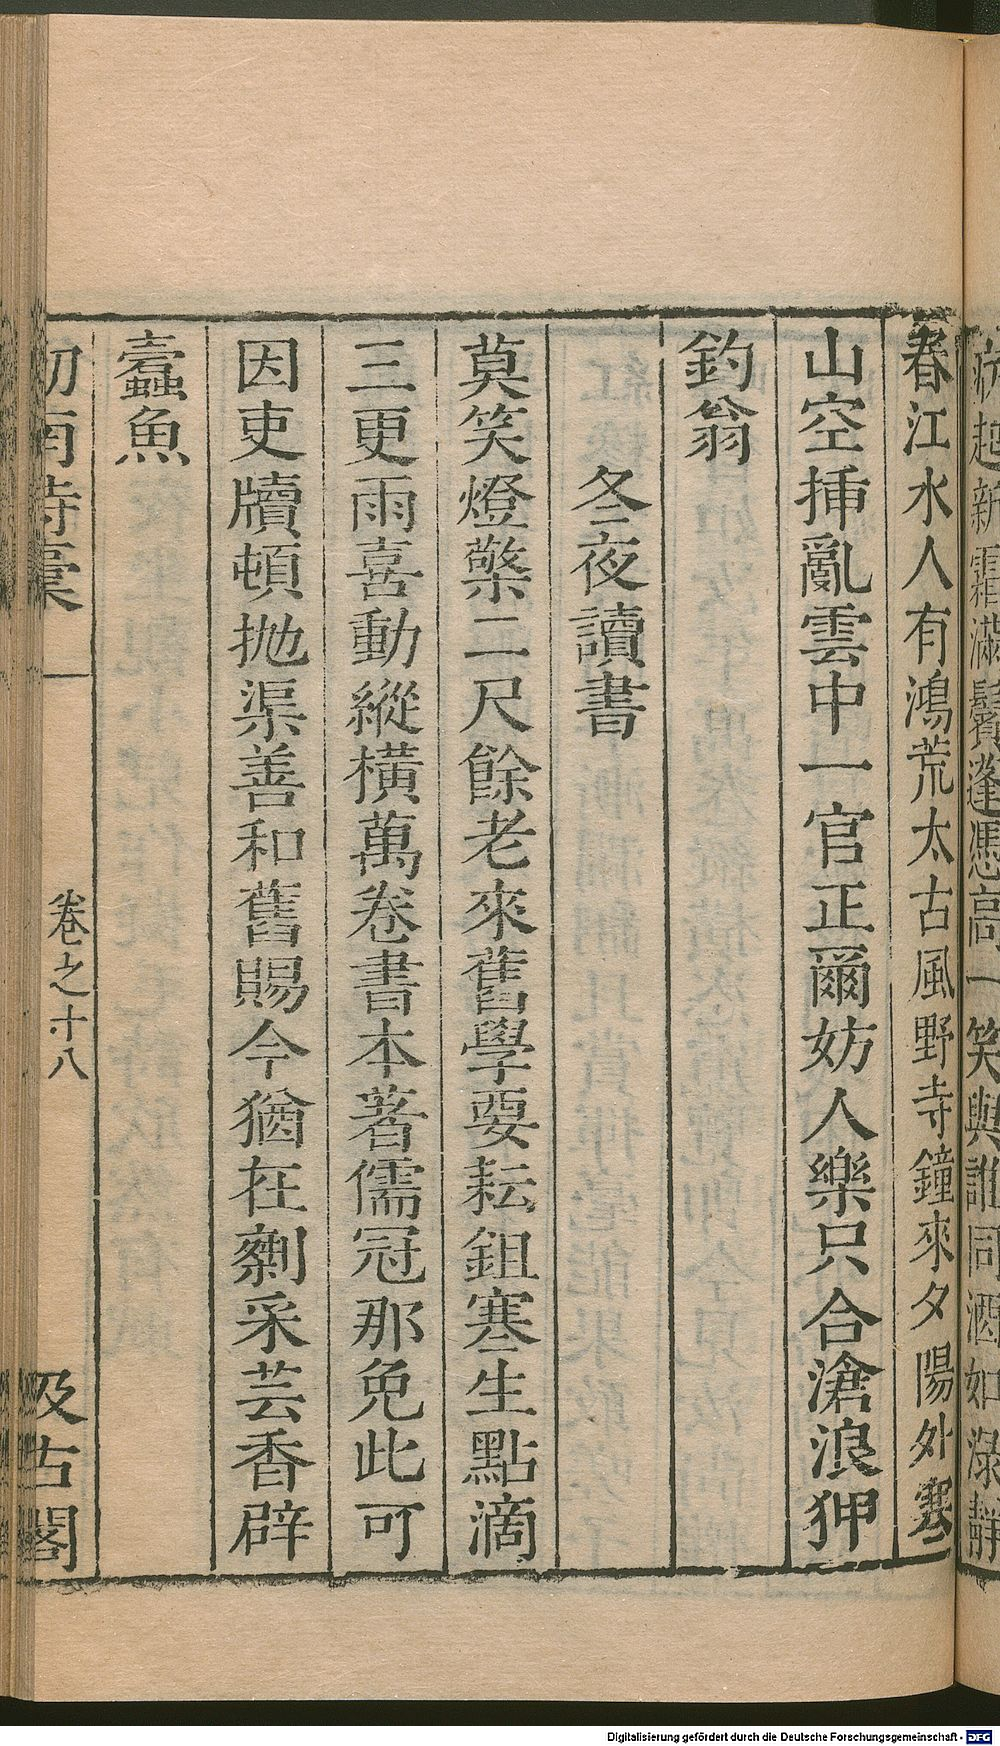 病起新霜滿鬢蓬憑高一笑與誰同酒如淥靜
春江水人有鴻荒太古風野寺鐘來夕陽外寒
山空插亂雲中一官正爾妨人樂只合滄浪狎
釣翁
冬夜讀書
莫笑燈檠二尺餘老來舊學要耘鉏寒生點滴
三更雨喜動縱橫萬卷書本著儒冠那免此可
因吏牘頓拋渠善和舊賜今猶在剩采芸香辟
蠹魚
劒南詩稾 卷之十八 汲古閣
Digitalisierung gefördert durch die Deutsche Forschungsgemeinschaft - DFG